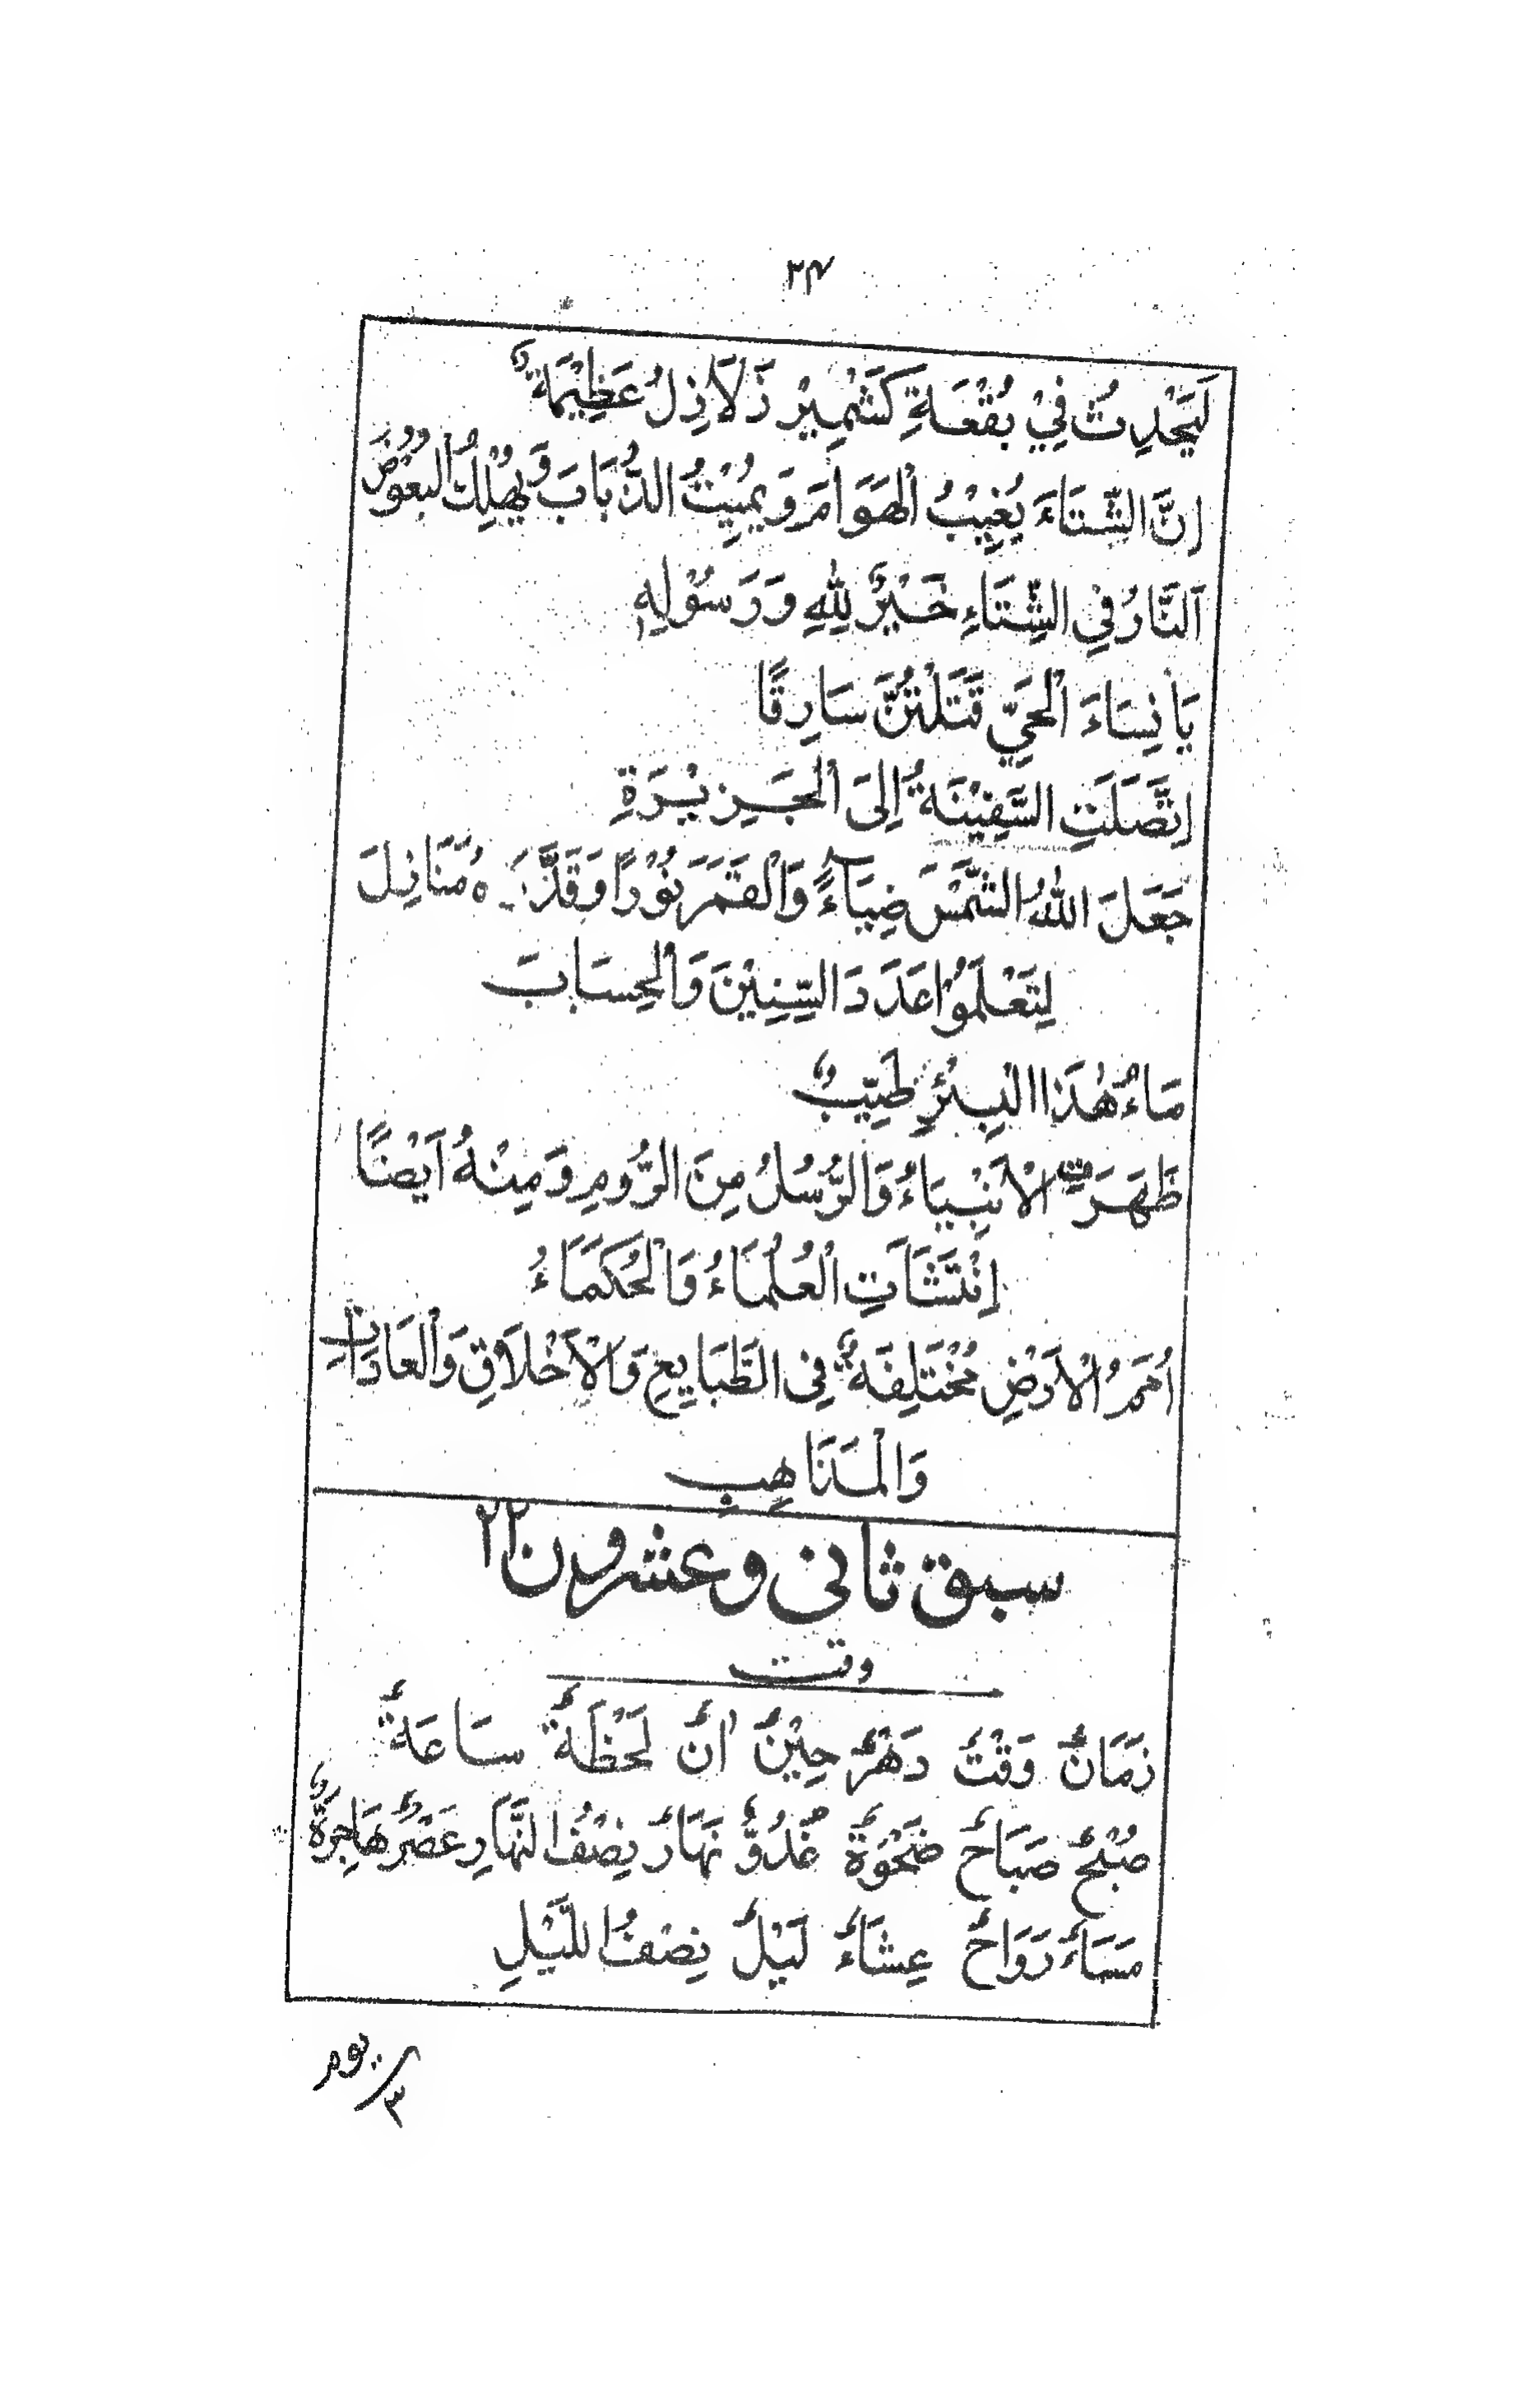 ۳۴
لَيَحْدِثُ فِيْ بُقْعَةِ كَشْمِيْر زَلَازِلُ عَظِيْمَةٌ
اِنَّ الشِّتَاءَ يُغِيْبُ الْهَوَامَ وَيُمِيْتُ الذُّبَابَ وَيُهْلِكُ الْبَعُوْضَ
اَلنَّارُ فِي الشِّتَاءِ خَيْرٌ لِلّٰهِ وَرَسُوْلِهٖ
يَا نِسَاءَ الْحَيِّ قَتَلْتُنَّ سَارِقًا
اِتَّصَلَتِ السَّفِيْنَةُ اِلَى الْجَزِيْرَةِ
جَعَلَ اللّٰهُ الشَّمْسَ ضِيَآءً وَالْقَمَرَ نُوْرًا وَقَدَّرَهُ مَنَازِلَ
لِتَعْلَمُوْا عَدَدَ السِّنِيْنَ وَالْحِسَابَ
مَاءُ هٰذَا الْبِئْرِ طَيِّبٌ
ظَهَرَتِ الْاَنْبِيَاءُ وَالرُّسُلُ مِنَ الرُّوْمِ وَمِنْهُ اَيْضًا
اِنْتَشَاَتِ الْعُلَمَاءُ وَالْحُكَمَاءُ
اُمَمُ الْاَرْضِ مُخْتَلِفَةٌ فِى الطَّبَايِعِ وَالْاَخْلَاقِ وَالْعَادَاتِ
وَالْمَذَاهِبِ
سبق ثانی و عشرون ۲۲
وقت
زَمَانٌ وَقْتٌ دَهْرٌ حِيْنٌ اٰنٌ لَحْظَةٌ سَاعَةٌ
صُبْحٌ صَبَاحٌ ضَحْوَةٌ غُدُوٌّ نَهَارٌ نِصْفُ النَّهَارِ عَصْرٌ هَاجِرَةٌ
مَسَاءٌ رَوَاحٌ عِشَاءٌ لَيْلٌ نِصْفُ اللَّيْلِ
يوم
۳